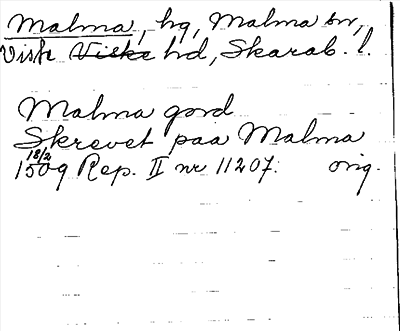 Malma, hg, Malma sn,
Visk Viske hd, Skarab. l.
Malma gord
Skrevet paa Malma
18/2
1509 Rep. II nr 11207. orig.